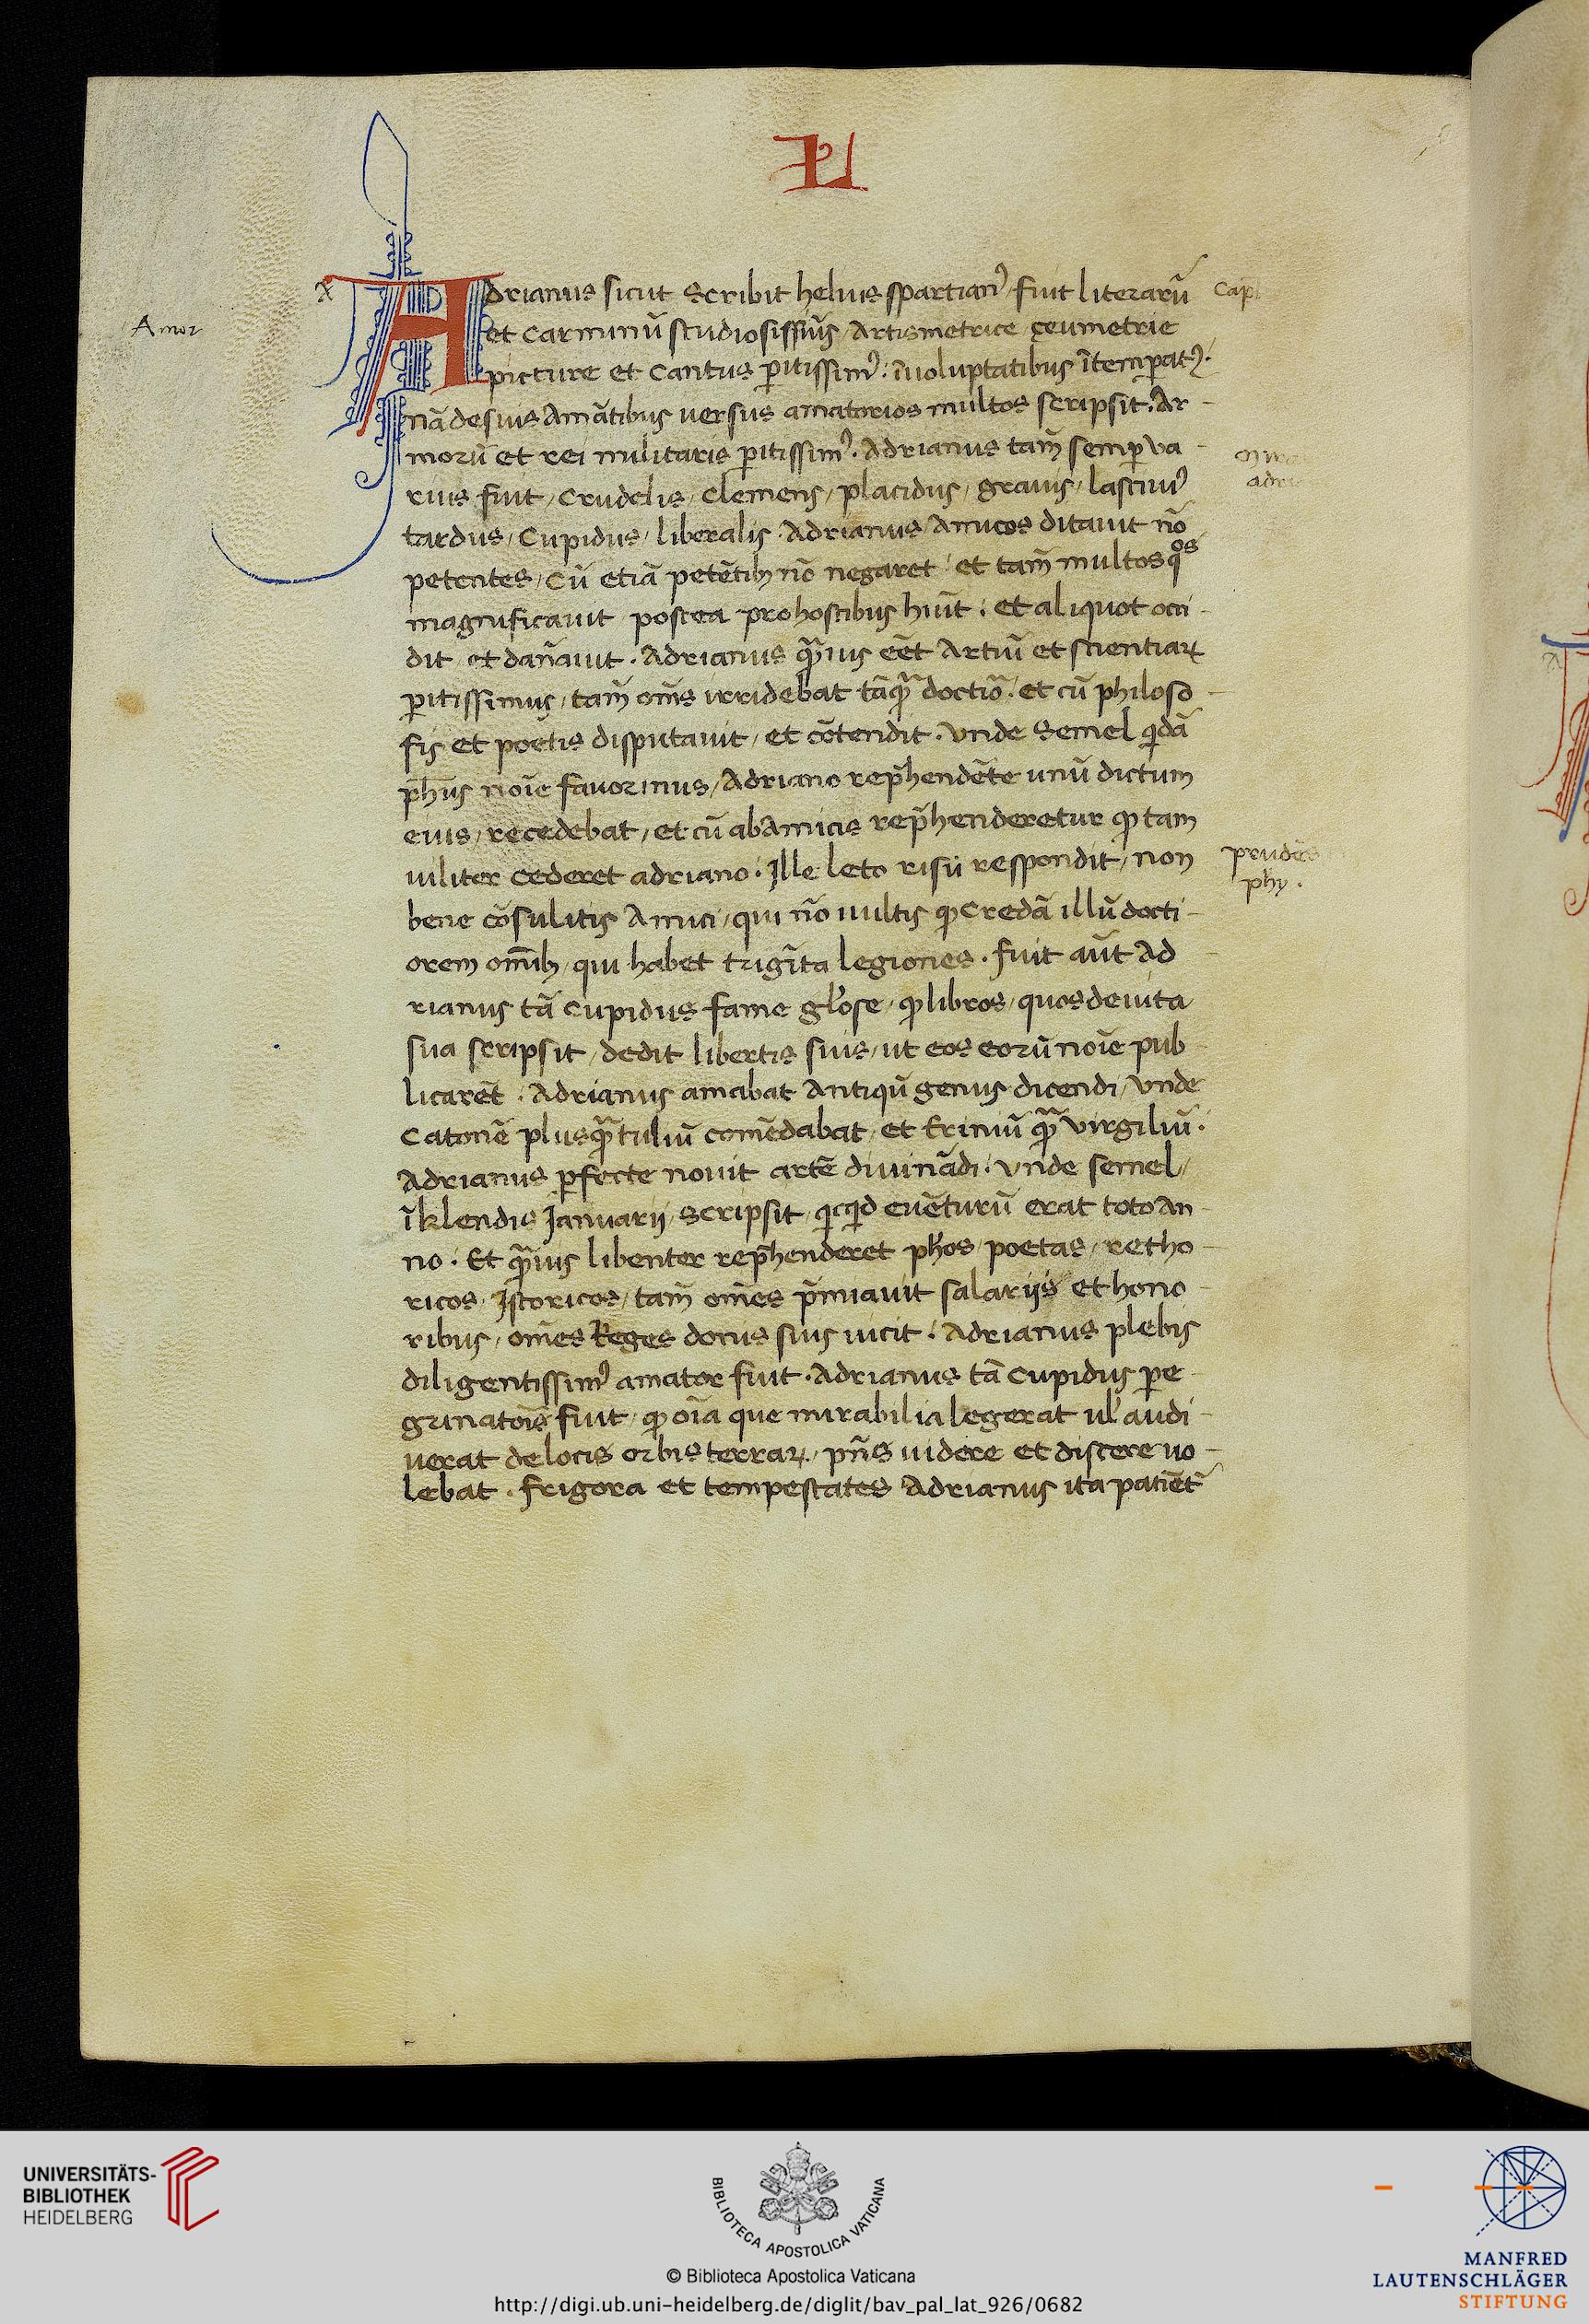 LI
Adrianus sicut scribit helius spartian⁹ / fuit literarū
et carminū studiosissiūs / Artismetrice / geumetrie
picture et cantus ꝑitissim⁹ : ī voluptatibus ītemꝑat⁹ .
nā de suis amātibus versus amatorios multos scripsit . Ar-
morū et rei militaris ꝑitissim⁹ . Adrianus tam̄ semꝑ va-
rius fuit / crudelis / clemens / placidus / gravis / lasciuu⁹
tardus / cupidus / liberalis . Adrianus / Amicos ditauit nō
petentes / cū etiā petētibꝫ nō negaret / et tam̄ multos qos
magnificauit postea pro hostibus hūit : et aliquot occi-
dit / et dan̄auit . Adrianus qꝫ̄uis eēt Artiū et scientiaꝝ
ꝑitissimus / tam̄ om̄s irridebat tāqꝫ̄ doctio᷑ . et cū philoso-
fis et poetis disputauit / et cōtendit . vnde semel qidā
ph̄us noīe favorinus / Adriano rep̄hendēte unū dictum
eius / recedebat / et cū ab Amicis rep̄henderetur ꝙ tam
uiliter cederet adriano : Ille leto risu respondit / non
bene cōsulitis Amici / qui nō uultis ꝙ credā illū docti-
orem om̄ibꝫ / qui habet trigīta legiones . fuit aūt Ad
rianus tā cupidus fame gl'ose / ꝙ libros / quos de uita
sua scripsit / dedit libertis suis / ut eos eorū noīe pub
licarēt . Adrianus amabat Antiqū genus dicendi / vnde
Catonē plusqꝫ̄ tuliū comēdabat / et Eniniū qꝫ̄ Virgiliū .
Adrianus ꝑfecte novit artē diuinādi : vnde semel /
ī klendis Januarij / scripsit / qicqid euēturū erat toto An-
no . Et qꝫ̄uis libenter rep̄henderet ph'os / poetas / retho-
ricos / Istoricos / tam̄ om̄es p̄miauit salarijs et hono-
ribus / om̄es Reges donis suis uicit : Adrianus plebis
diligentissim⁹ amator fuit . Adrianus tā cupidus ꝑe-
grinatoīs fuit / ꝙ oīa que mirabilia legerat ul' audi-
uerat de locis orbis terraꝝ / pn̄s uidere et discere uo-
lebat . frigora et tempestates Adrianus ita patiēt᷑
Amor
a
Cap
adri
prudēs
phy .
UNIVERSITÄTS-
BIBLIOTHEK
HEIDELBERG
BIBLIOTECA APOSTOLICA VATICANA
© Biblioteca Apostolica Vaticana
http://digi.ub.uni-heidelberg.de/diglit/bav_pal_lat_926/0682
MANFRED
LAUTENSCHLÄGER
STIFTUNG